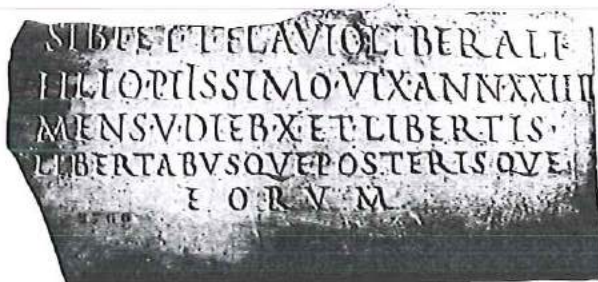 SIBI ET T FLAVIO LIBERALI
FILIO·PIISSIMO·VIX·ANN·XXIIII
MENS·V·DIEB·X·ET·LIBERTIS·
LIBERTABVSQVE POSTERISQVE
EORVM